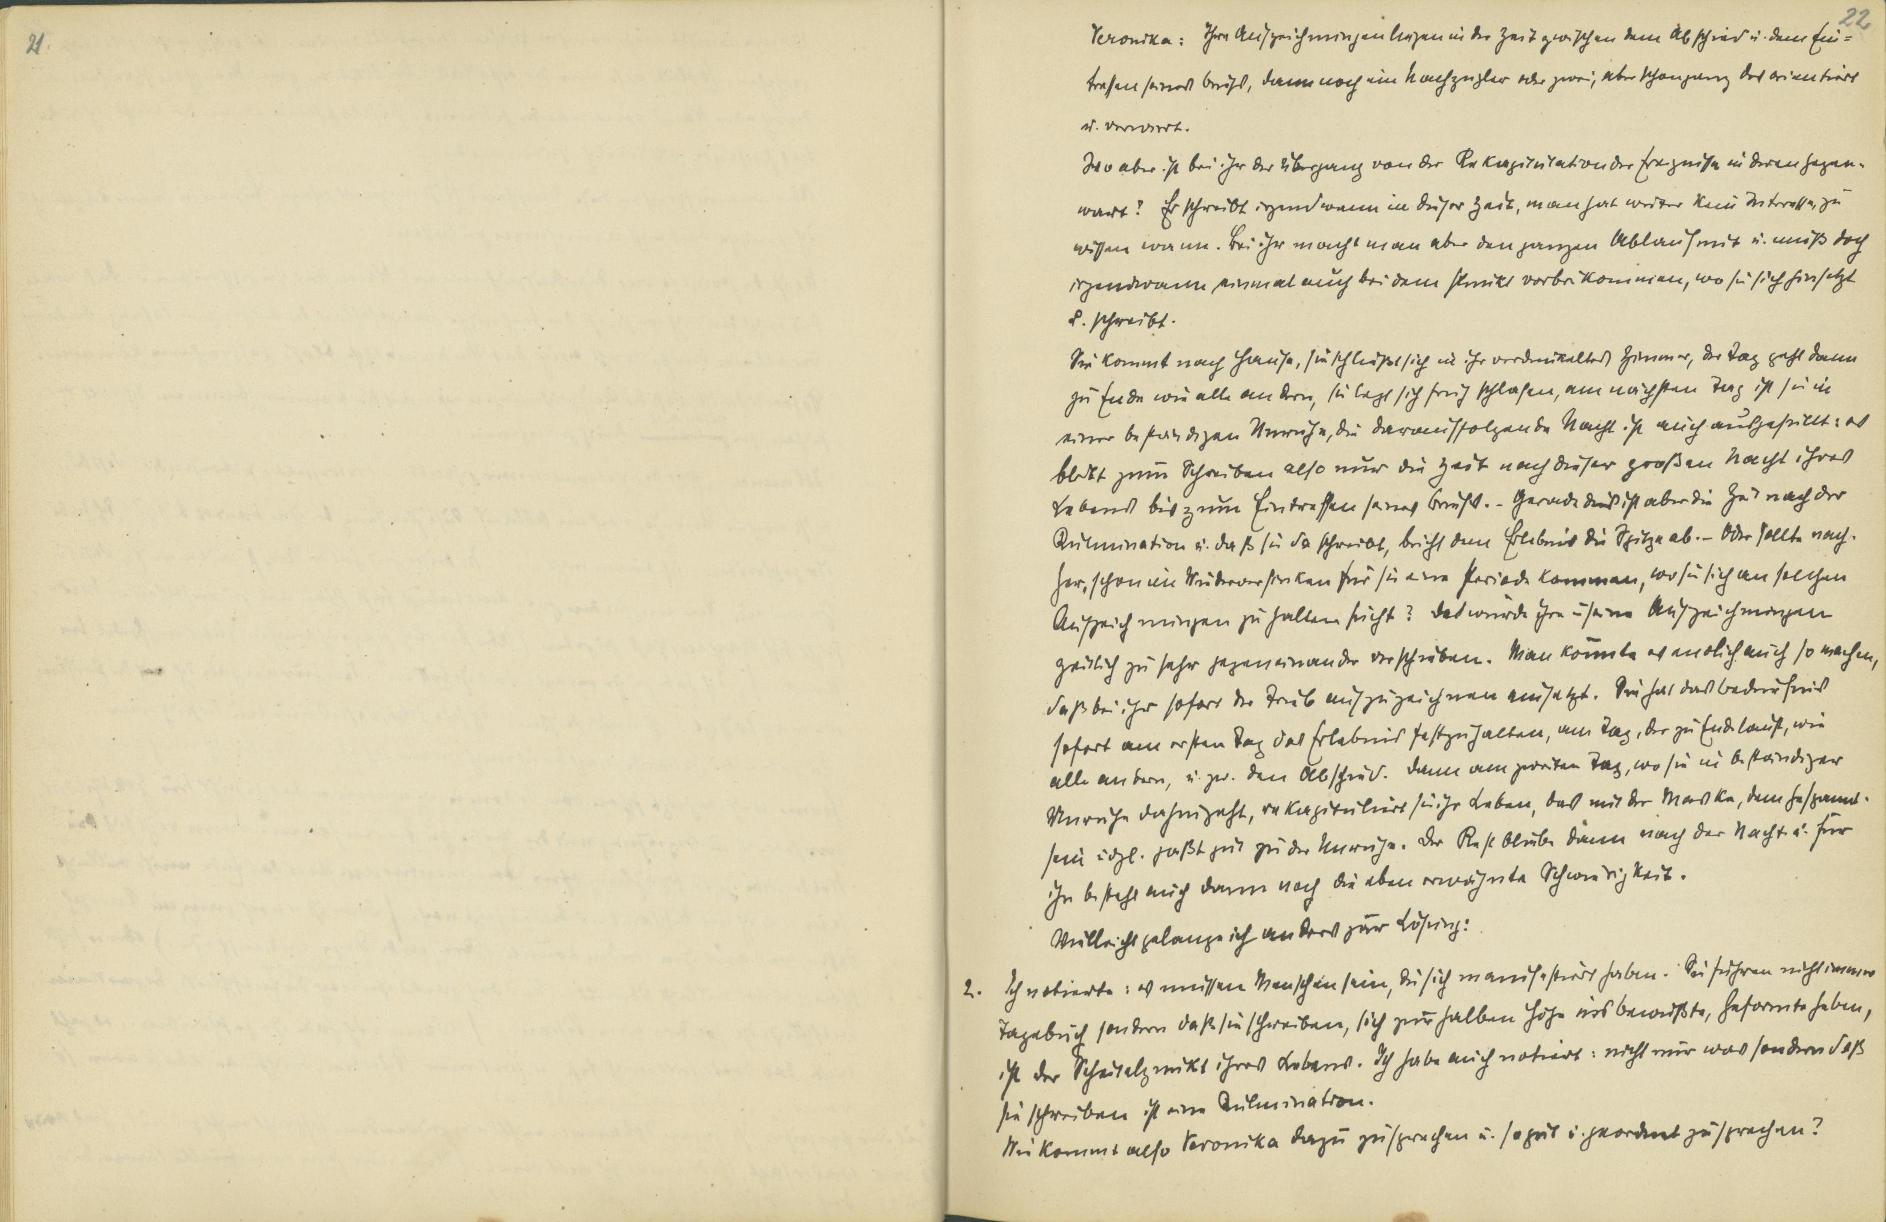 21.
22
Veronika: Ihre Aufzeichnungen liegen in der Zeit zwischen dem Abschied u. dem Ein=
treffen seines Briefs, dann noch ein Nachzügler oder zwei, aber schon ganz desorientiert
u. verwirrt.
Wo aber ist bei ihr der Übergang von der Rekapitulation der Ereignisse in deren Gegen-
wart? Er schreibt irgendwann in dieser Zeit, man hat weiter kein Interesse, zu
wissen wann. Bei ihr macht man aber den ganzen Ablauf mit u. muß doch
irgendwann einmal auch bei dem Punkt vorbeikommen, wo sie sich hinsetzt
u. schreibt.
Sie kommt nach Hause, sie schließt sich in ihr verdunkeltes Zimmer, der Tag geht dann
zu Ende wie alle andern, sie legt sich früh schlafen, am nächsten Tag ist sie in
einer beständigen Unruhe, die darauffolgende Nacht ist auch ausgefüllt: es
bleibt zum Schreiben also nur die Zeit nach dieser großen Nacht ihres
Lebens bis zum Eintreffen seines Briefs. – Gerade dies ist aber die Zeit nach der
Kulmination u. daß sie da schreibt, bricht dem Erlebnis die Spitze ab. – Oder sollte nach-
her, schon im Wiederversinken für sie eine Periode kommen, wo sie sich an solchen
Aufzeichnungen zu halten sucht? Das würde ihre u seine Aufzeichnungen
zeitlich zu sehr gegeneinander verschieben. Man könnte es endlich auch so machen,
daß bei ihr sofort der Trieb aufzuzeichnen einsetzt. Sie hat das Bedürfnis
sofort am ersten Tag das Erlebnis festzuhalten, am Tag, der zu Ende läuft, wie
alle andern, u. zw. den Abschied. Dann am zweiten Tag, wo sie in beständiger
Unruhe dahingeht, rekapituliert sie ihr Leben, das mit der Maske, dem Gespannt-
sein udgl. paßt gut zu der Unruhe. Der Rest bliebe dann nach der Nacht u. für
ihn besteht auch dann noch die eben erwähnte Schwierigkeit.
Vielleicht gelange ich anders zur Lösung:
2. Ich notierte: es müssen Menschen sein, die sich manifestiert haben. Sie führen nicht immer
Tagebuch sondern daß sie schreiben, sich zur halben Höhe ins bewußte, Geformte heben,
ist der Scheitelpunkt ihres Lebens. Ich habe auch notiert: nicht nur was sondern daß
sie schreiben ist eine Kulmination.
Wie kommt also Veronika dazu zu sprechen u. so gut u. geordnet zu sprechen?